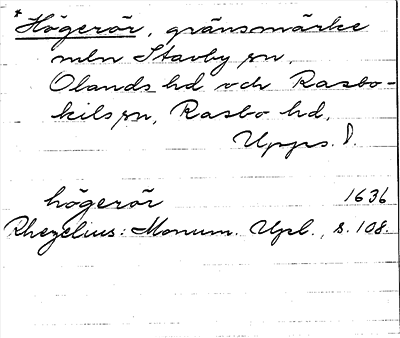 *Högerör, gränsmärke
mln Stavby sn,
Olands hd och Rasbo-
kils sn, Rasbo hd,
Upps. l.
högerör 1636
Rhezelius: Monum. Upl., s. 108.